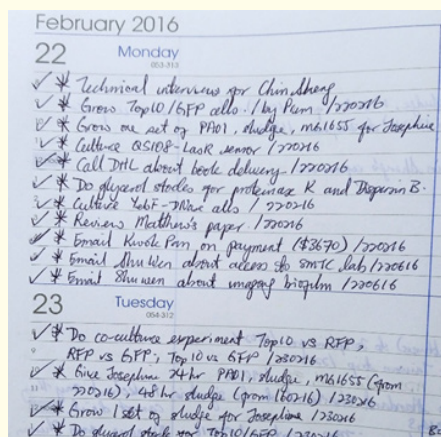 February 2016
22 Monday
053-313
Technical interviews for Chin Sheng
Grow Top10/GFP cells. / by Pam /220216
Grow one set of PAO1, sludge, MG1655 for Josephine
Culture QS108-LasR sensor /220216
Call DHL about book delivery /220216
Do glycerol stocks for proteinase K and Dispersin B.
Culture YebF-DNase cells /220216
Review Matthew's paper. /220216
Email Kwok Pan on payment ($3670) /220216
Email Shu Wen about access to SMTC lab /220616
Email Shuwen about imaging biofilm /220616
23 Tuesday
054-312
Do co-culture experiment Top10 vs RFP,
RFP vs GFP; Top10 vs GFP /230216
Give Josephine 24hr PAO1, sludge, MG1655 (from
220216), 48hr sludge (from 160216) /230216
Grow 1 set of sludge for Josephine /230216
Do glycerol stock for Top10/GFP /230216